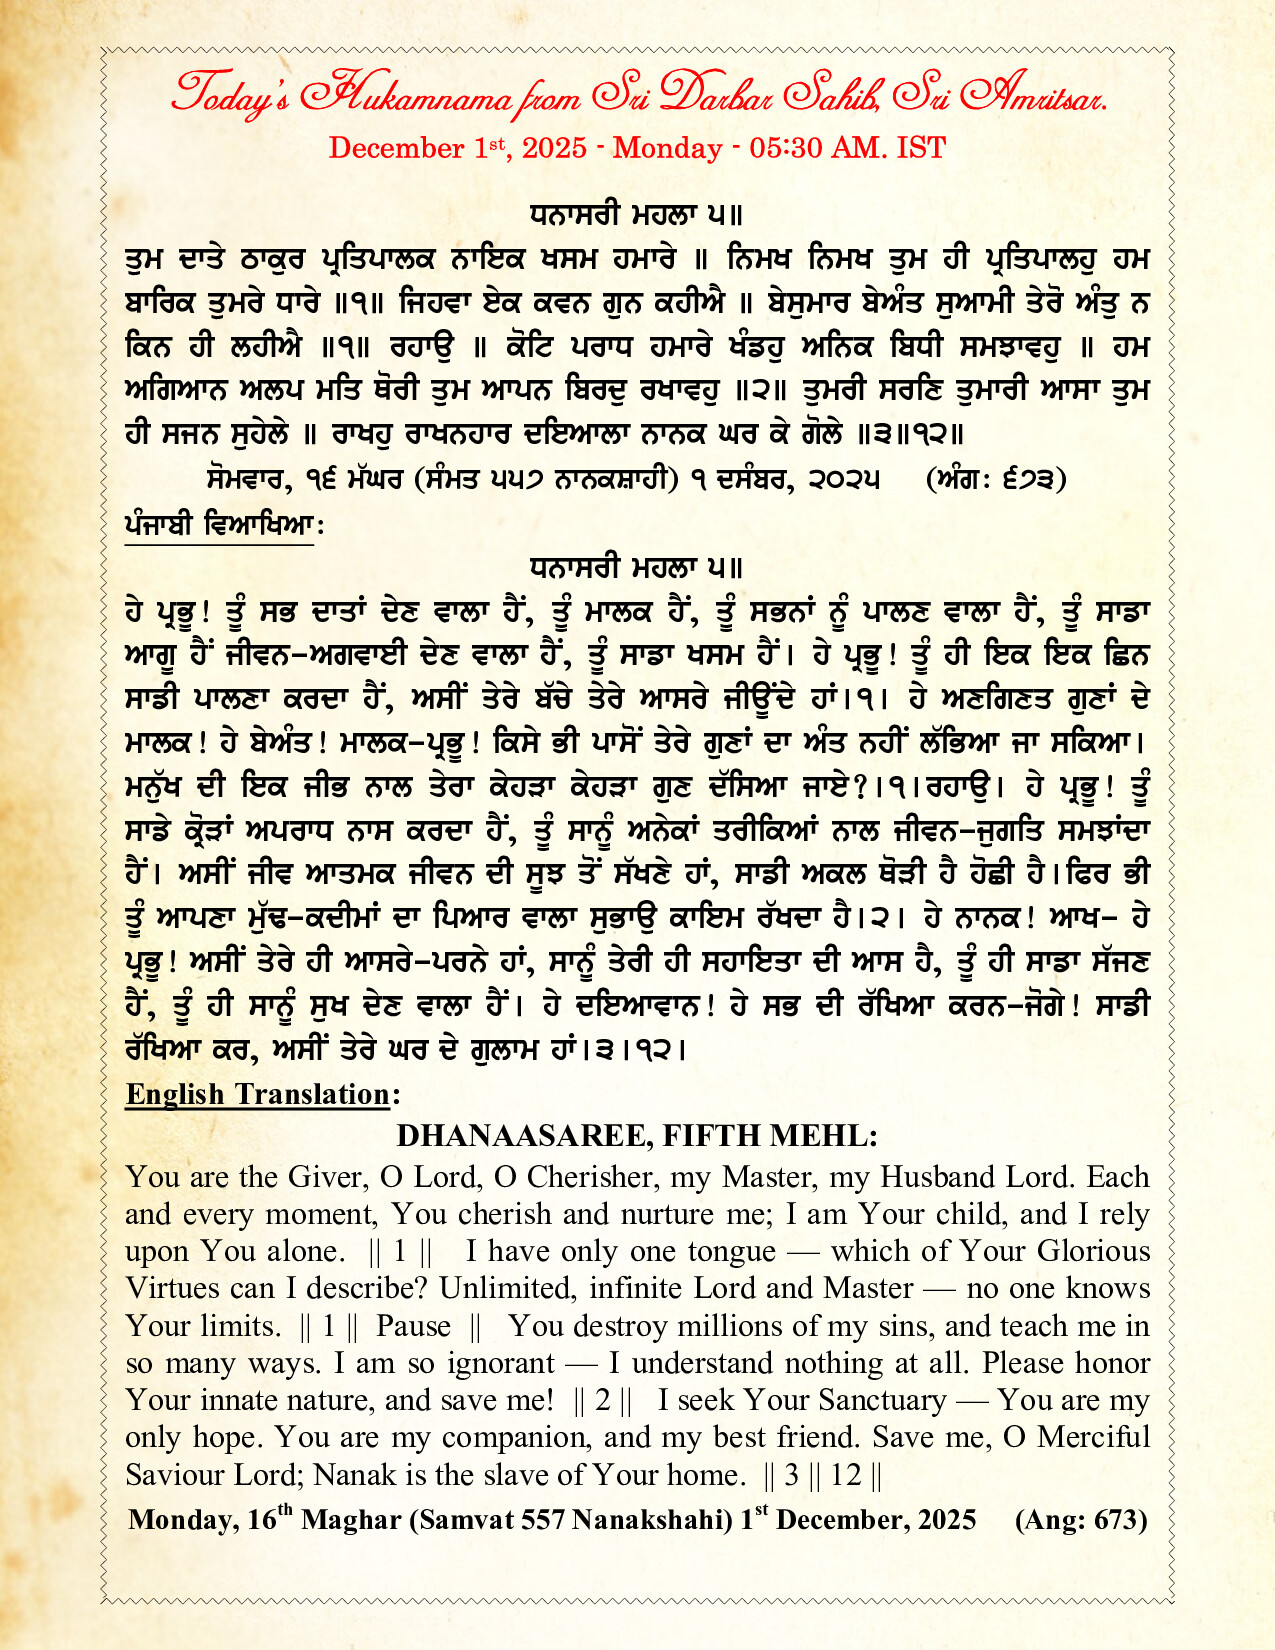 Today's Hukamnama from Sri Darbar Sahib, Sri Amritsar.
December 1st, 2025 - Monday - 05:30 AM. IST
ਧਨਾਸਰੀ ਮਹਲਾ ੫॥
ਤੁਮ ਦਾਤੇ ਠਾਕੁਰ ਪ੍ਰਤਿਪਾਲਕ ਨਾਇਕ ਖਸਮ ਹਮਾਰੇ ॥ ਨਿਮਖ ਨਿਮਖ ਤੁਮ ਹੀ ਪ੍ਰਤਿਪਾਲਹੁ ਹਮ
ਬਾਰਿਕ ਤੁਮਰੇ ਧਾਰੇ ॥੧॥ ਜਿਹਵਾ ਏਕ ਕਵਨ ਗੁਨ ਕਹੀਐ ॥ ਬੇਸੁਮਾਰ ਬੇਅੰਤ ਸੁਆਮੀ ਤੇਰੋ ਅੰਤੁ ਨ
ਕਿਨ ਹੀ ਲਹੀਐ ॥੧॥ ਰਹਾਉ ॥ ਕੋਟਿ ਪਰਾਧ ਹਮਾਰੇ ਖੰਡਹੁ ਅਨਿਕ ਬਿਧੀ ਸਮਝਾਵਹੁ ॥ ਹਮ
ਅਗਿਆਨ ਅਲਪ ਮਤਿ ਥੋਰੀ ਤੁਮ ਆਪਨ ਬਿਰਦੁ ਰਖਾਵਹੁ ॥੨॥ ਤੁਮਰੀ ਸਰਣਿ ਤੁਮਾਰੀ ਆਸਾ ਤੁਮ
ਹੀ ਸਜਨ ਸੁਹੇਲੇ ॥ ਰਾਖਹੁ ਰਾਖਨਹਾਰ ਦਇਆਲਾ ਨਾਨਕ ਘਰ ਕੇ ਗੋਲੇ ॥੩॥੧੨॥
ਸੋਮਵਾਰ, ੧੬ ਮੱਘਰ (ਸੰਮਤ ੫੫੭ ਨਾਨਕਸ਼ਾਹੀ) ੧ ਦਸੰਬਰ, ੨੦੨੫ (ਅੰਗ: ੬੭੩)
ਪੰਜਾਬੀ ਵਿਆਖਿਆ:
ਧਨਾਸਰੀ ਮਹਲਾ ੫॥
ਹੇ ਪ੍ਰਭੂ! ਤੂੰ ਸਭ ਦਾਤਾਂ ਦੇਣ ਵਾਲਾ ਹੈਂ, ਤੂੰ ਮਾਲਕ ਹੈਂ, ਤੂੰ ਸਭਨਾਂ ਨੂੰ ਪਾਲਣ ਵਾਲਾ ਹੈਂ, ਤੂੰ ਸਾਡਾ
ਆਗੂ ਹੈਂ ਜੀਵਨ-ਅਗਵਾਈ ਦੇਣ ਵਾਲਾ ਹੈਂ, ਤੂੰ ਸਾਡਾ ਖਸਮ ਹੈਂ। ਹੇ ਪ੍ਰਭੂ! ਤੂੰ ਹੀ ਇਕ ਇਕ ਛਿਨ
ਸਾਡੀ ਪਾਲਣਾ ਕਰਦਾ ਹੈਂ, ਅਸੀਂ ਤੇਰੇ ਬੱਚੇ ਤੇਰੇ ਆਸਰੇ ਜੀਊਂਦੇ ਹਾਂ।੧। ਹੇ ਅਣਗਿਣਤ ਗੁਣਾਂ ਦੇ
ਮਾਲਕ! ਹੇ ਬੇਅੰਤ! ਮਾਲਕ-ਪ੍ਰਭੂ! ਕਿਸੇ ਭੀ ਪਾਸੋਂ ਤੇਰੇ ਗੁਣਾਂ ਦਾ ਅੰਤ ਨਹੀਂ ਲੱਭਿਆ ਜਾ ਸਕਿਆ।
ਮਨੁੱਖ ਦੀ ਇਕ ਜੀਭ ਨਾਲ ਤੇਰਾ ਕੇਹੜਾ ਕੇਹੜਾ ਗੁਣ ਦੱਸਿਆ ਜਾਏ?।੧।ਰਹਾਉ। ਹੇ ਪ੍ਰਭੂ! ਤੂੰ
ਸਾਡੇ ਕ੍ਰੋੜਾਂ ਅਪਰਾਧ ਨਾਸ ਕਰਦਾ ਹੈਂ, ਤੂੰ ਸਾਨੂੰ ਅਨੇਕਾਂ ਤਰੀਕਿਆਂ ਨਾਲ ਜੀਵਨ-ਜੁਗਤਿ ਸਮਝਾਂਦਾ
ਹੈਂ। ਅਸੀਂ ਜੀਵ ਆਤਮਕ ਜੀਵਨ ਦੀ ਸੂਝ ਤੋਂ ਸੱਖਣੇ ਹਾਂ, ਸਾਡੀ ਅਕਲ ਥੋੜੀ ਹੈ ਹੋਛੀ ਹੈ।ਫਿਰ ਭੀ
ਤੂੰ ਆਪਣਾ ਮੁੱਢ-ਕਦੀਮਾਂ ਦਾ ਪਿਆਰ ਵਾਲਾ ਸੁਭਾਉ ਕਾਇਮ ਰੱਖਦਾ ਹੈ।੨। ਹੇ ਨਾਨਕ! ਆਖ- ਹੇ
ਪ੍ਰਭੂ! ਅਸੀਂ ਤੇਰੇ ਹੀ ਆਸਰੇ-ਪਰਨੇ ਹਾਂ, ਸਾਨੂੰ ਤੇਰੀ ਹੀ ਸਹਾਇਤਾ ਦੀ ਆਸ ਹੈ, ਤੂੰ ਹੀ ਸਾਡਾ ਸੱਜਣ
ਹੈਂ, ਤੂੰ ਹੀ ਸਾਨੂੰ ਸੁਖ ਦੇਣ ਵਾਲਾ ਹੈਂ। ਹੇ ਦਇਆਵਾਨ! ਹੇ ਸਭ ਦੀ ਰੱਖਿਆ ਕਰਨ-ਜੋਗੇ! ਸਾਡੀ
ਰੱਖਿਆ ਕਰ, ਅਸੀਂ ਤੇਰੇ ਘਰ ਦੇ ਗੁਲਾਮ ਹਾਂ।੩।੧੨।
English Translation:
DHANAASAREE, FIFTH MEHL:
You are the Giver, O Lord, O Cherisher, my Master, my Husband Lord. Each
and every moment, You cherish and nurture me; I am Your child, and I rely
upon You alone. || 1 || I have only one tongue — which of Your Glorious
Virtues can I describe? Unlimited, infinite Lord and Master — no one knows
Your limits. || 1 || Pause || You destroy millions of my sins, and teach me in
so many ways. I am so ignorant — I understand nothing at all. Please honor
Your innate nature, and save me! || 2 || I seek Your Sanctuary — You are my
only hope. You are my companion, and my best friend. Save me, O Merciful
Saviour Lord; Nanak is the slave of Your home. || 3 || 12 ||
Monday, 16th Maghar (Samvat 557 Nanakshahi) 1st December, 2025 (Ang: 673)